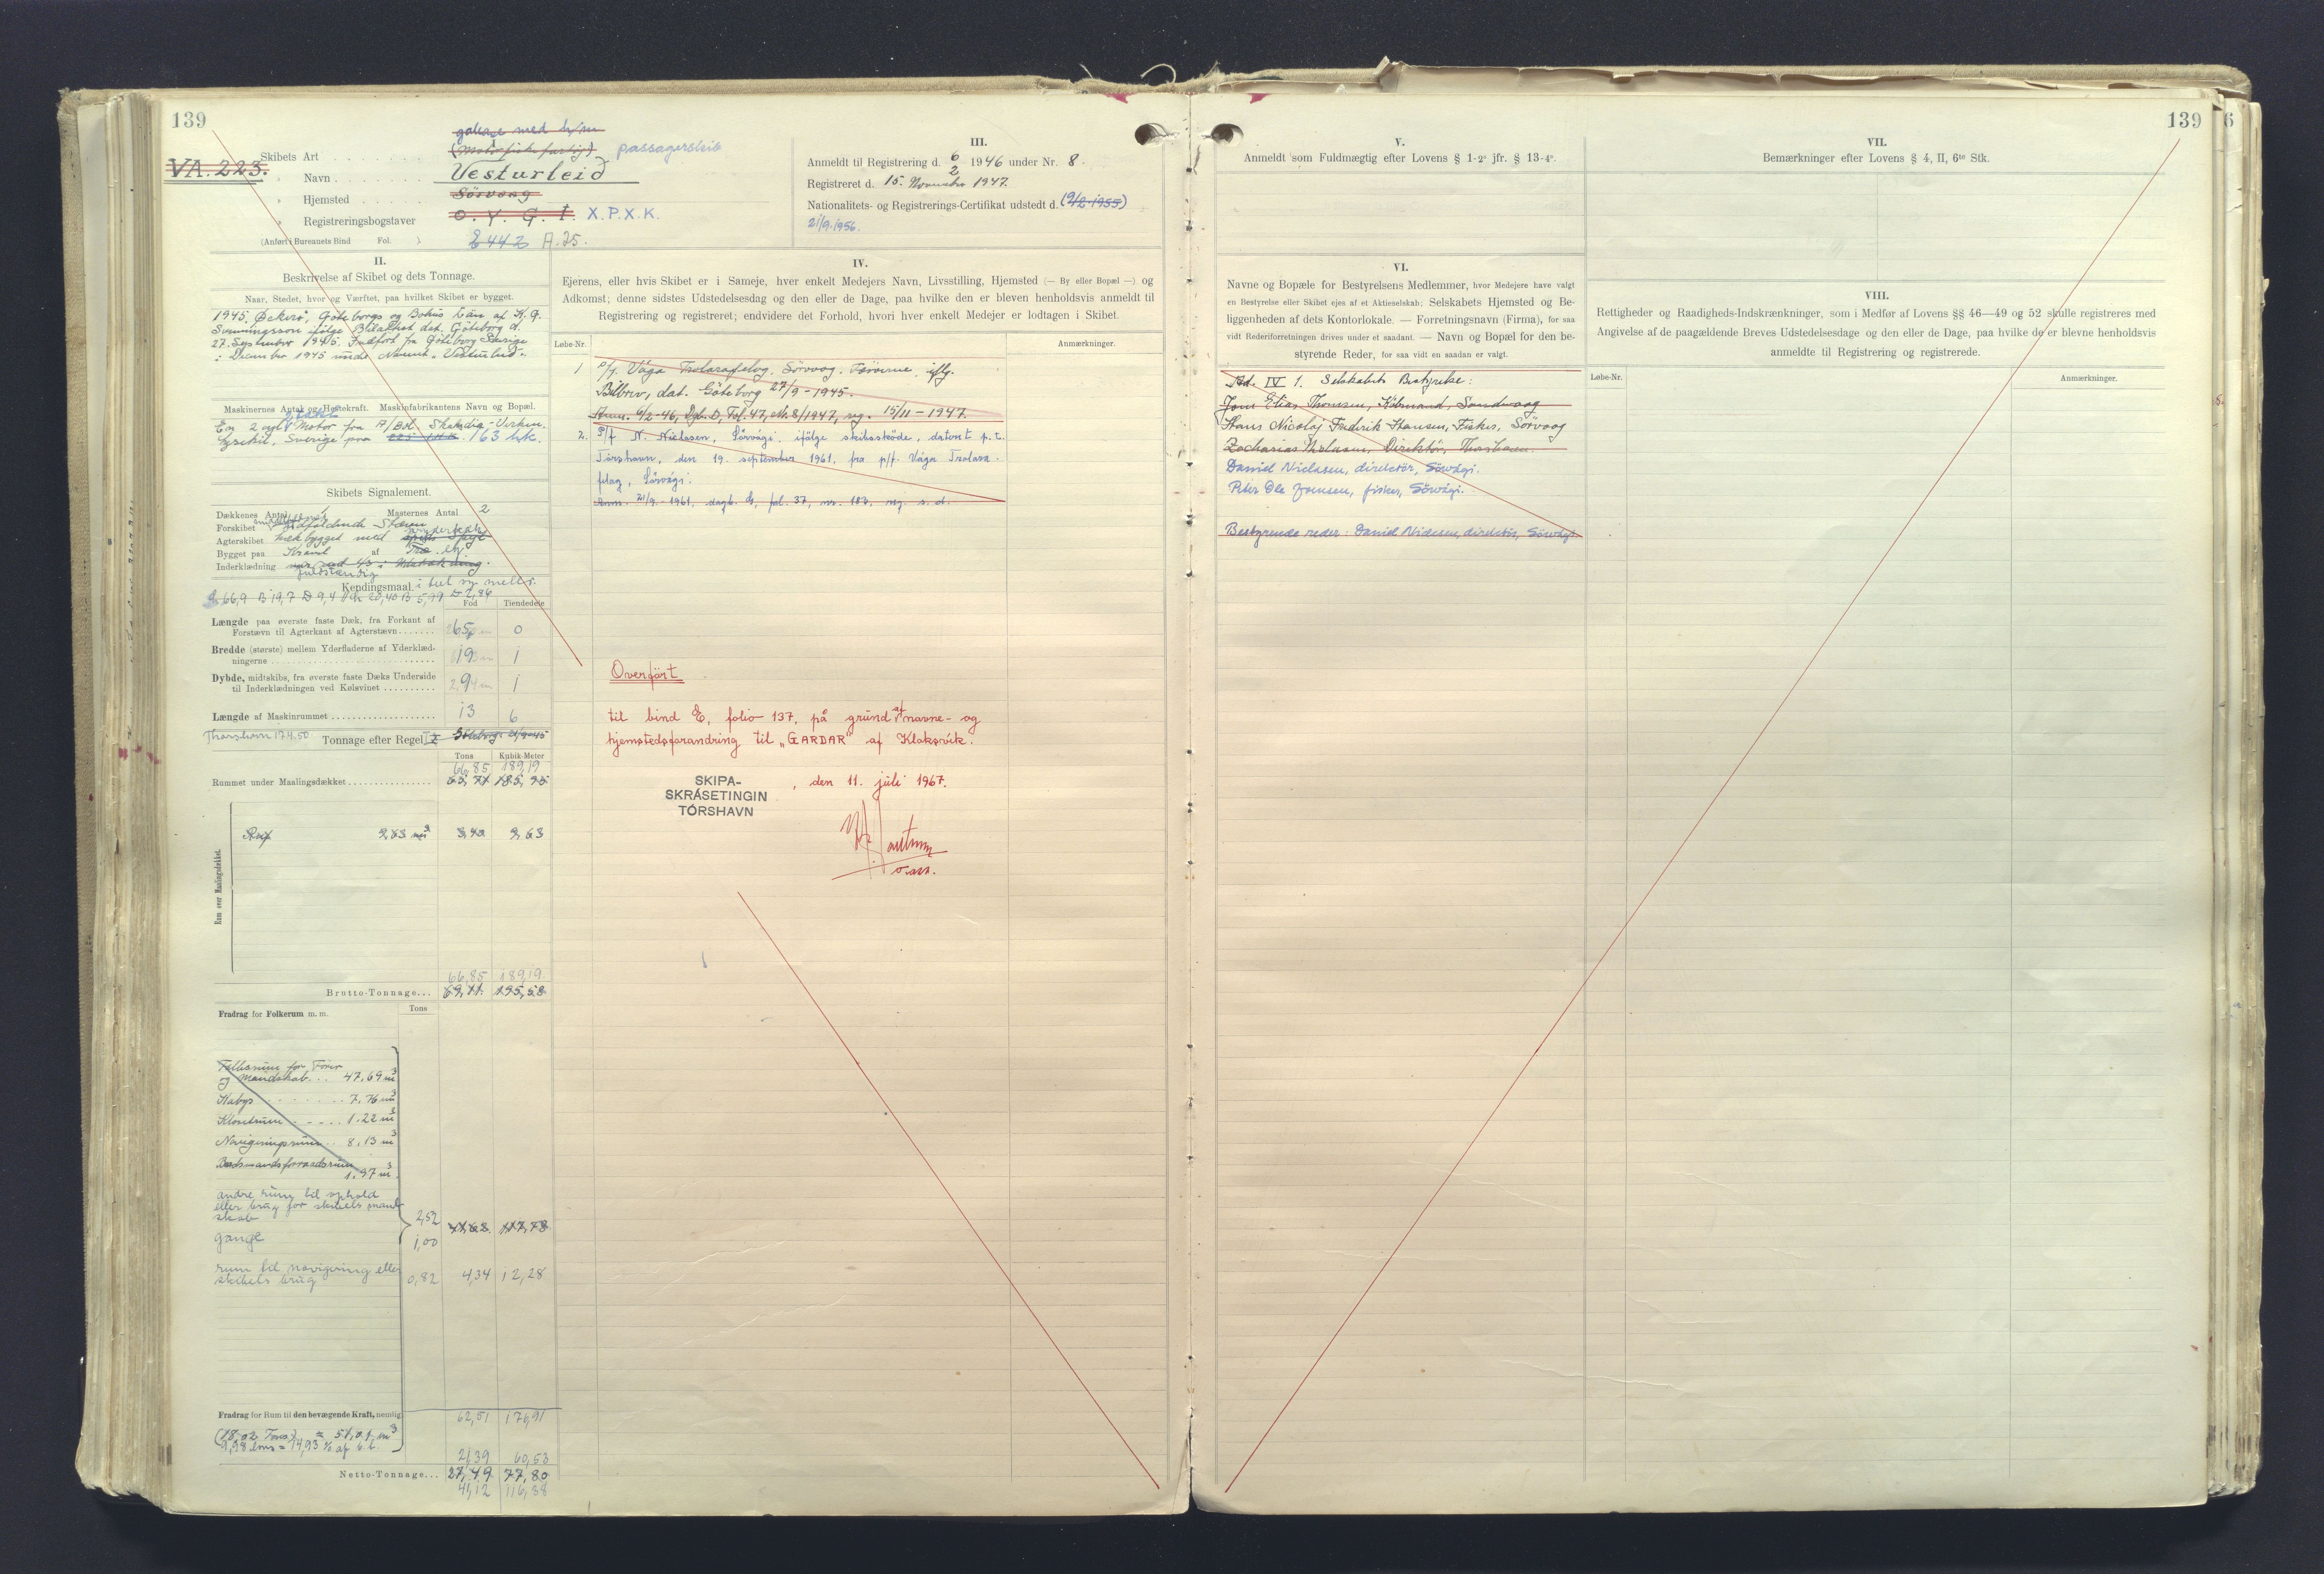 139
VA. 223.
galease med hj/m
Skibets Art (Motorfiskefartøj) passagerskib
" Navn Vesturleid
" Hjemsted Sörvaag
" Registreringsbogstaver O. Y. G. I. X.P.X.K.
(Anført i Bureauets Bind Fol. ) A.25.
II.
Beskrivelse af Skibet og dets Tonnage.
Naar, Stedet, hvor og Værftet, paa hvilket Skibet er bygget.
1945, Öckerö, Göteborgs og Bohus Län af K. G.
Svenningsson ifølge Bilattest dat. Göteborg d.
27. September 1945. Indført fra Göteborg Sverige
i December 1945 under Navnet "Vesturleid".
Maskinernes Antal og Hestekraft. Maskinfabrikantens Navn og Bopæl.
En 2 cyl. Motor fra A/Bol. Skandia-Verken,
Lysekil, Sverige paa 163 hk.
Skibets Signalement.
Dækkenes Antal 1 Masternes Antal 2
Forskibet Stævn
Agterskibet hækbygget med
Bygget paa Kravel af Træ. eg.
Inderklædning
fuldstændig
Kendingsmaal.
L 66,9 B 19,7 D 9,4 L 20,40 B 5,99 D 2,86
Fod Tiendedele
Længde paa øverste faste Dæk, fra Forkant af
Forstævn til Agterkant af Agterstævn 65 0
Bredde (største) mellem Yderfladerne af Yderklæd-
ningerne 19 1
Dybde, midtskibs, fra øverste faste Dæks Underside
til Inderklædningen ved Kølsvinet 9 1
Længde af Maskinrummet 13 6
Thorshavn 17.4.50 Tonnage efter Regel I
Tons Kubik-Meter
66,85 189,19
Rummet under Maalingsdækket 185,95
Rum over Maalingsdækket.
Ruf 9,63 m³ 3,40 9,63
66,85 189,19
Brutto-Tonnage... 69,11 195,58
Tons
Fradrag for Folkerum m. m.
Folkerum for Fører
og Mandskab... 47,69 m³
Kabys 7,76 m³
Klosetrum 1.22 m³
Navigeringsrum 8,13 m³
Baadsmandsforraadsrum
1,97 m³
andre rum til ophold
eller brug for skibets mand-
skab 2,52
gange 1,00
rum til navigering eller
skibets brug 0,82 4,34 12,28
Fradrag for Rum til den bevægende Kraft, nemlig 62,51 176,91
(18,02 Tons) = 51,01 m³
9,98 tons = 14,93 % af b.t.
21,39 60,53
Netto-Tonnage... 27,49 77,80
41,12 116,38
III.
Anmeldt til Registrering d. 6/2 1946 under Nr. 8.
Registreret d. 15. November 1947.
Nationalitets- og Registrerings-Certifikat udstedt d. (9/2-1955)
21/9.1956.
IV.
Ejerens, eller hvis Skibet er i Sameje, hver enkelt Medejers Navn, Livsstilling, Hjemsted (— By eller Bopæl —) og
Adkomst; denne sidstes Udstedelsesdag og den eller de Dage, paa hvilke den er bleven henholdsvis anmeldt til
Registrering og registreret; endvidere det Forhold, hvori hver enkelt Medejer er lodtagen i Skibet.
Løbe-Nr. Anmærkninger.
1 P/f. Vága Trolarafelag, Sörvaag, Færøerne iflg.
Bilbrev, dat. Göteborg 27/9-1945.
Anm. 6/2-46, Dgb. D, Fol. 47, Nr. 8/1947, reg. 15/11-1947.
2. P/f N. Nielsen, Sörvági, ifølge skibsskøde, dateret p.t.
Tórshavn, den 19. september 1961, fra p/f. Vága Trolara-
felag, Sörvági.
Anm. 21/9-1961, dagb. G, fol. 37, nr. 183, reg. s. d.
Overført
til bind E, folio 137, på grund af navne- og
hjemstedsforandring til "GARDAR" af Klaksvík.
SKIPA-
SKRÁSETINGIN
TÓRSHAVN
, den 11. juli 1967.
o.ass.
139
6
V.
Anmeldt som Fuldmægtig efter Lovens § 1-2° jfr. § 13-4°.
VI.
Navne og Bopæle for Bestyrelsens Medlemmer, hvor Medejere have valgt
en Bestyrelse eller Skibet ejes af et Aktieselskab; Selskabets Hjemsted og Be-
liggenheden af dets Kontorlokale. — Forretningsnavn (Firma), for saa
vidt Rederiforretningen drives under et saadant. — Navn og Bopæl for den be-
styrende Reder, for saa vidt en saadan er valgt.
Ad. IV 1. Selskabets Bestyrelse:
Jens Elias Thomsen, Købmand, Sandevaag
Hans Nicolaj Frederik Hansen, Fisker, Sörvaag
Zacharias Nielsen, Direktør, Thorshavn
Daniel Niclasen, direktör, Sörvági.
Peter Ole Joensen, fisker, Sörvági.
Bestyrende reder: Daniel Niclasen, direktör, Sörvági
VII.
Bemærkninger efter Lovens § 4, II, 6te Stk.
VIII.
Rettigheder og Raadigheds-Indskrænkninger, som i Medfør af Lovens §§ 46—49 og 52 skulle registreres med
Angivelse af de paagældende Breves Udstedelsesdage og den eller de Dage, paa hvilke de er blevne henholdsvis
anmeldte til Registrering og registrerede.
Løbe-Nr. Anmærkninger.